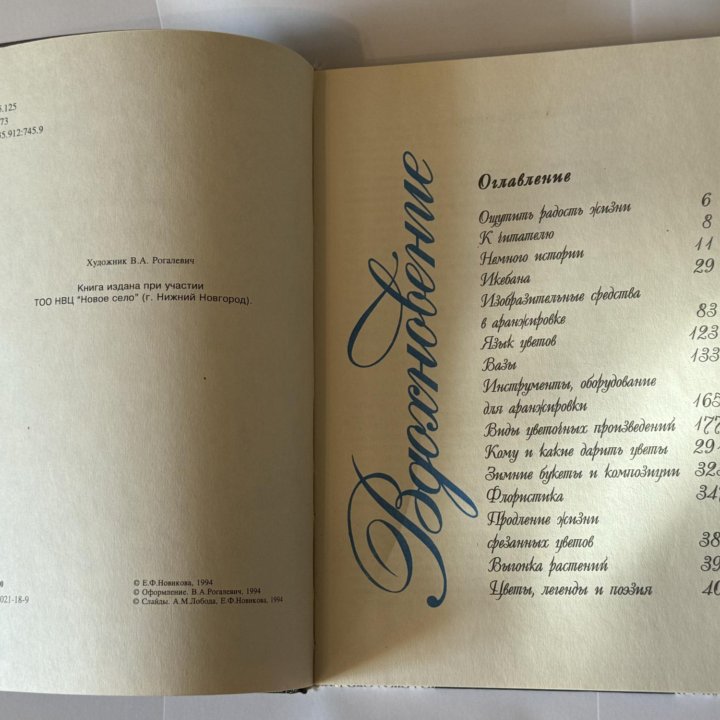 5.125
73
35.912:745.9
Художник В.А. Рогалевич
Книга издана при участии
ТОО НВЦ "Новое село" (г. Нижний Новгород).
0
021-18-9
© Е.Ф.Новикова, 1994
© Оформление. В.А.Рогалевич, 1994
© Слайды. А.М.Лобода, Е.Ф.Новикова, 1994
Вдохновение
Оглавление
Ощутить радость жизни 6
К читателю 8
Немного истории 11
Икебана 29
Изобразительные средства
в аранжировке 83
Язык цветов 123
Вазы 133
Инструменты, оборудование
для аранжировки 165
Виды цветочных произведений 177
Кому и какие дарить цветы 291
Зимние букеты и композиции 323
Флористика 347
Продление жизни
срезанных цветов 38
Выгонка растений 39
Цветы, легенды и поэзия 40